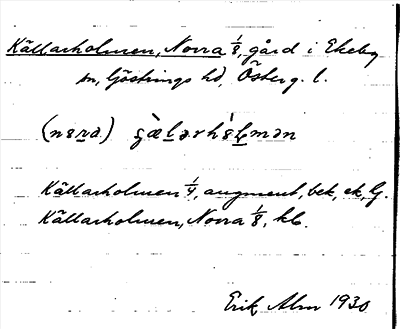 Källarholmen, Norra 1/8, gård i Ekeby
sn, Göstrings hd, Österg. l.
(nɷra) çæ̀larhɷ́lmən
Källarholmen 1/4, augment, bek, ek, G.
Källarholmen, Norra 1/8, kb.
Erik Alm 1930